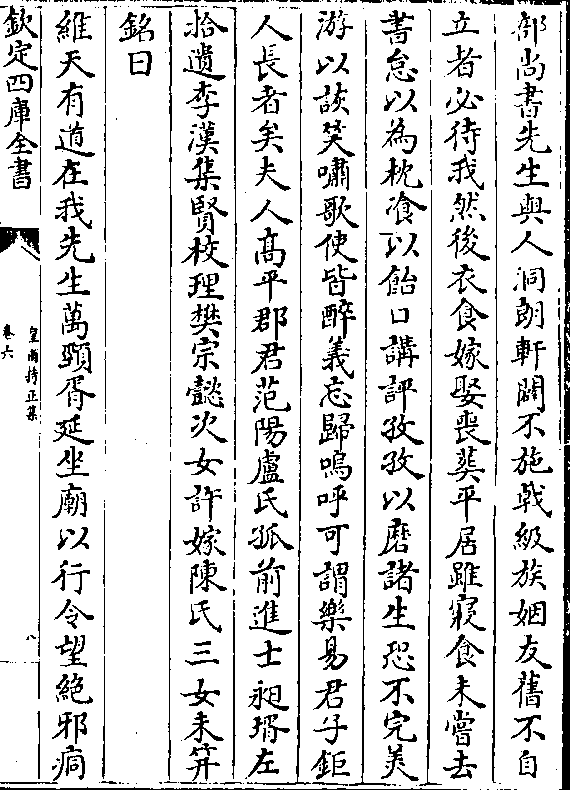 部尚書先生與人洞朗軒闢不施戟級族姻友舊不自
立者必待我然後衣食嫁娶喪葬平居雖寢食未嘗去
書怠以為枕飡以飴口講評孜孜以磨諸生恐不完美
游以詼笑嘯歌使皆醉義忘歸嗚呼可謂樂易君子鉅
人長者矣夫人高平郡君范陽盧氏孤前進士昶壻左
拾遺李漢集賢校理樊宗懿次女許嫁陳氏三女未笄
銘曰
維天有道在我先生萬頸胥延坐廟以行令望絕邪痌
欽定四庫全書
皇甫持正集
卷六
八